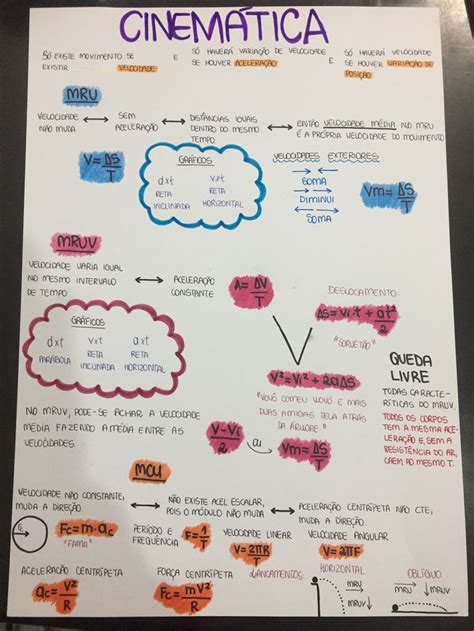 CINEMÁTICA
SÓ EXISTE MOVIMENTO SE
EXISTIR VELOCIDADE
E
SÓ HAVERÁ VARIAÇÃO DE VELOCIDADE
SE HOUVER ACELERAÇÃO
E
SÓ HAVERÁ VELOCIDADE
SE HOUVER VARIAÇÃO DE
POSIÇÃO
MRU
VELOCIDADE
NÃO MUDA
SEM
ACELERAÇÃO
DISTÂNCIAS IGUAIS
DENTRO DO MESMO
TEMPO
ENTÃO VELOCIDADE MÉDIA NO MRU
É A PRÓPRIA VELOCIDADE DO MOVIMENTO
V=ΔS/T
GRÁFICOS
dxt
RETA
INCLINADA
vxt
RETA
HORIZONTAL
VELOCIDADES EXTERIORES
SOMA
DIMINUI
SOMA
Vm=ΔS/T
MRUV
VELOCIDADE VARIA IGUAL
NO MESMO INTERVALO
DE TEMPO
ACELERAÇÃO
CONSTANTE
A=ΔV/T
DESLOCAMENTO
ΔS=Vit+at²/2
"SORVETÃO"
GRÁFICOS
dxt
PARÁBOLA
vxt
RETA
INCLINADA
axt
RETA
HORIZONTAL
V²=Vi²+2aΔS
"VOVÔ COMEU VOVÓ E MAIS
DUAS AMIGAS DELA ATRÁS
DA ÁRVORE."
QUEDA
LIVRE
TODAS CARACTE-
RÍSTICAS DO MRUV.
TODOS OS CORPOS
TEM A MESMA ACE-
LERAÇÃO E, SEM A
RESISTÊNCIA DO AR,
CAEM AO MESMO T.
NO MRUV, PODE-SE ACHAR A VELOCIDADE
MÉDIA FAZENDO A MÉDIA ENTRE AS
VELOCIDADES.
V-Vi/2
ou
Vm=ΔS/T
MCU
VELOCIDADE NÃO CONSTANTE,
MUDA A DIREÇÃO
NÃO EXISTE ACEL ESCALAR,
POIS O MÓDULO NÃO MUDA
ACELERAÇÃO CENTRÍPETA NÃO CTE,
MUDA A DIREÇÃO
Fc=m.ac
"FAMA"
PERÍODO E
FREQUÊNCIA
F=1/T
VELOCIDADE LINEAR
V=2πR/T
VELOCIDADE ANGULAR
V=2πF
ACELERAÇÃO CENTRÍPETA
ac=V²/R
FORÇA CENTRÍPETA
Fc=mV²/R
LANÇAMENTOS:
HORIZONTAL
MRU
MRUV
OBLÍQUO
MRU
MRUV